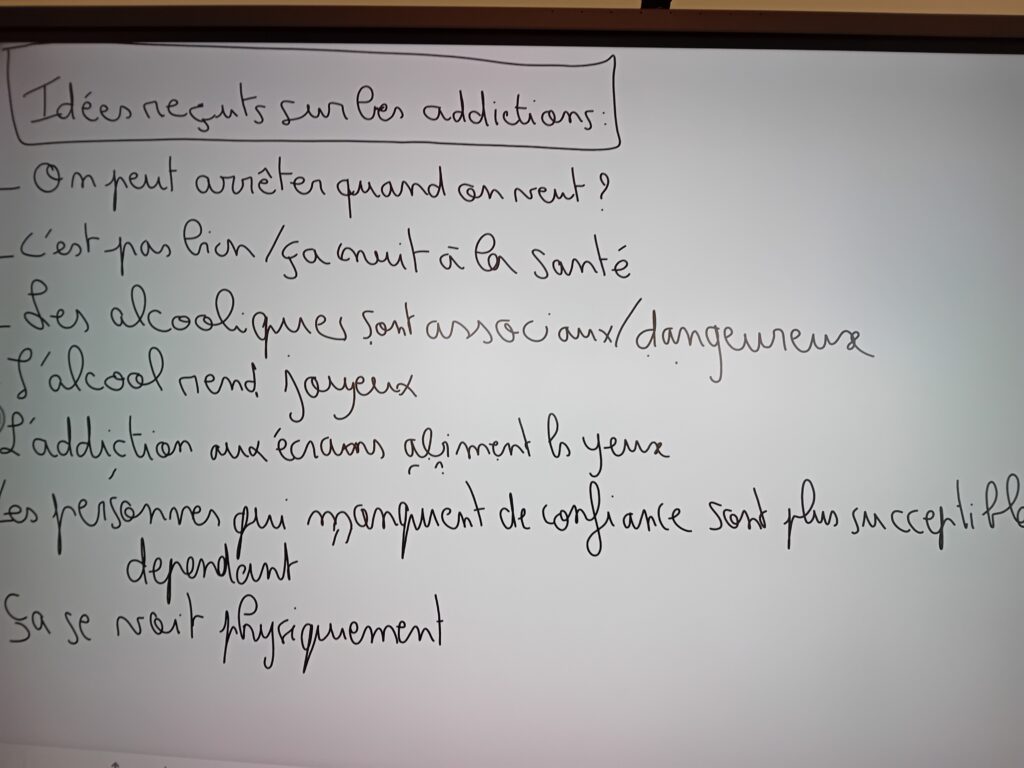 Idées reçuts sur les addictions:
- On peut arrêter quand on veut ?
- C'est pas bien/ça nuit à la santé
- Les alcooliques sont associaux/dangeureux
L'alcool rend joyeux
L'addiction aux écrans abiment ls yeux
Les personnes qui manquent de confiance sont plus susceptible
dependant
ça se voit physiquement